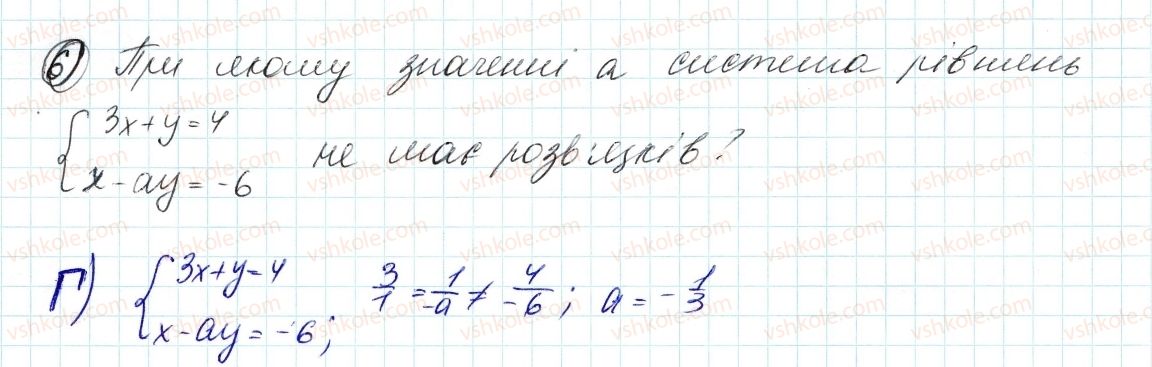 6) При якому значенні a система рівнянь
{ 3x+y=4
x-ay=-6 не має розв'язків?
Г) { 3x+y=4
x-ay=-6; 3/1 = 1/-a ≠ 4/-6; a = -1/3